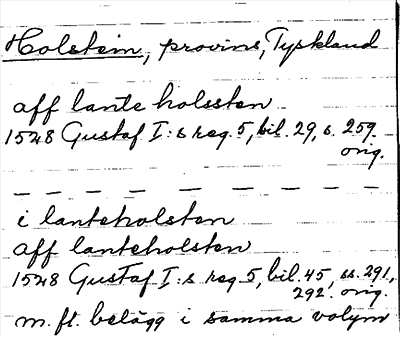 Holstein, provins, Tyskland
aff lante holssten
1528 Gustaf I:s reg. 5, bil. 29, s. 259.
orig.
i lanteholsten
aff lanteholsten
1528 Gustaf I:s reg 5, bil. 45, ss. 291,
292. orig.
m. fl. belägg i samma volym